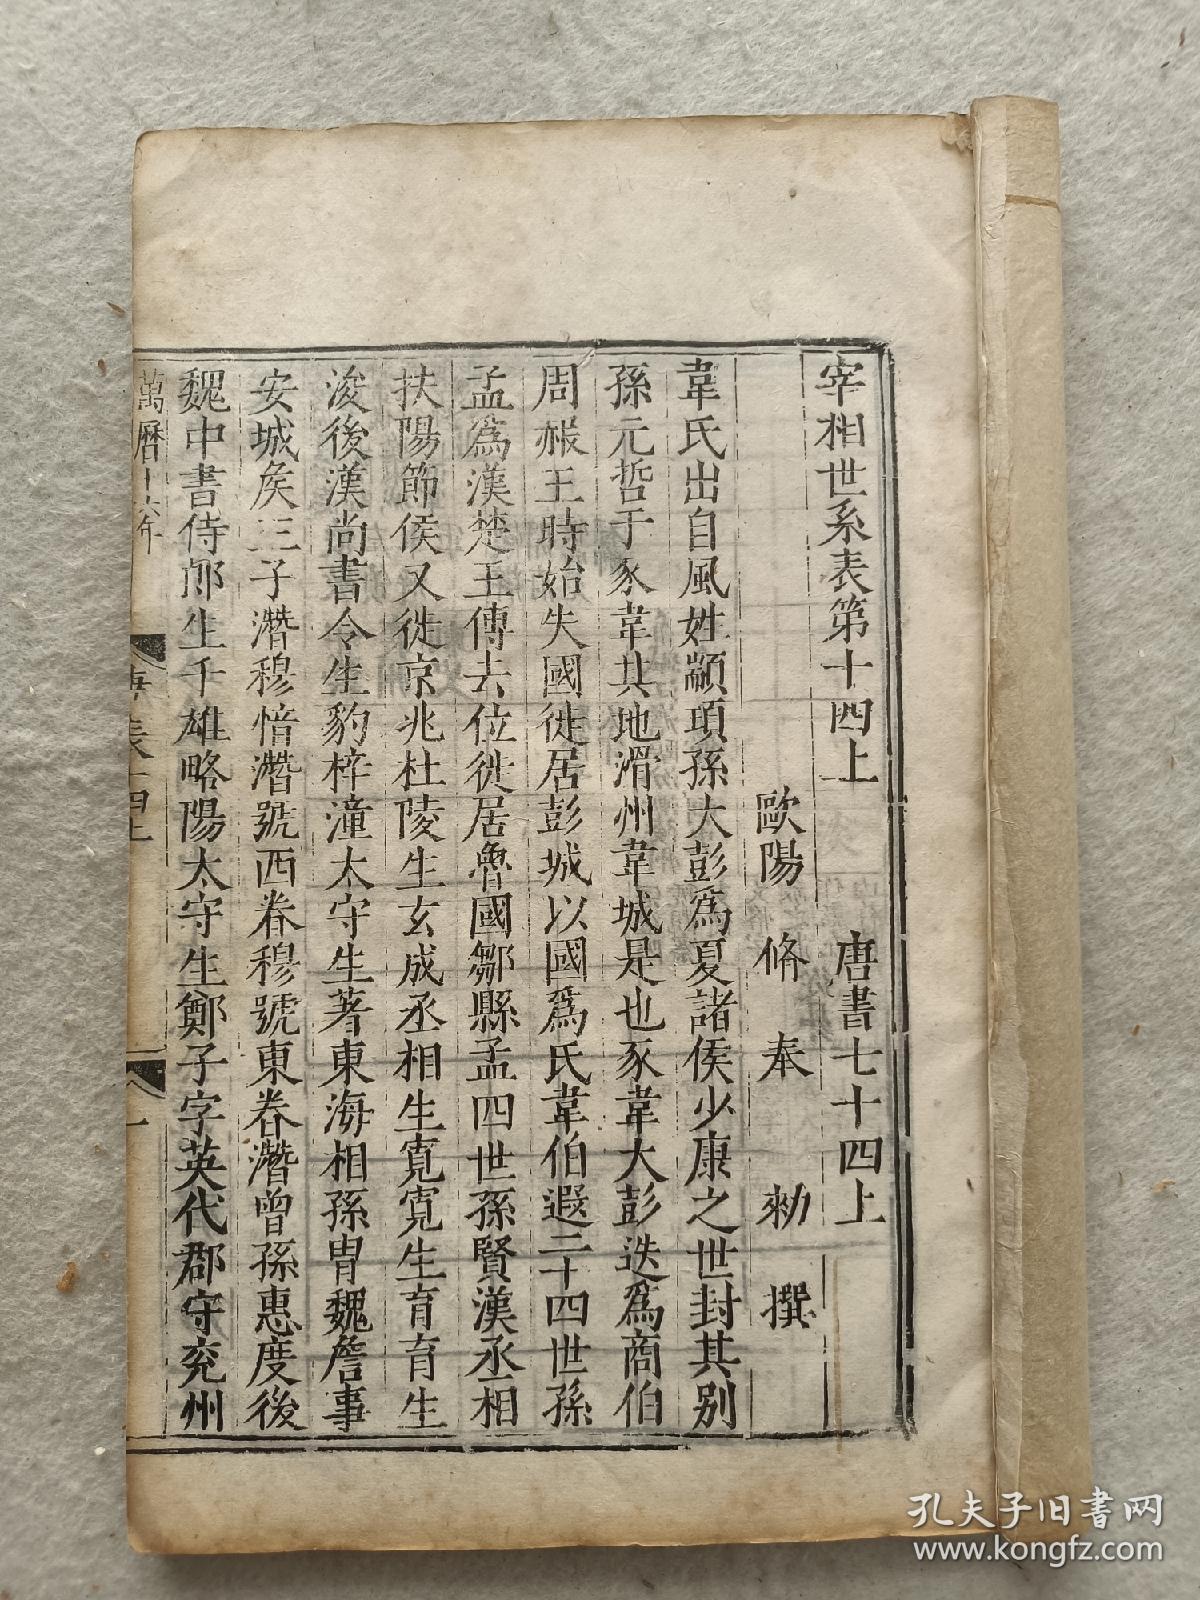 宰相世系表第十四上　唐書七十四上
歐陽　脩　奉　勑　撰
韋氏出自風姓顓頊孫大彭爲夏諸侯少康之世封其别
孫元哲于豕韋其地滑州韋城是也豕韋大彭迭爲商伯
周赧王時始失國徙居彭城以國爲氏韋伯遐二十四世孫
孟爲漢楚王傳去位徙居魯國鄒縣孟四世孫賢漢丞相
扶陽節侯又徙京兆杜陵生玄成丞相生寬寬生育育生
浚後漢尚書令生豹梓潼太守生著東海相孫冑魏詹事
安城侯三子潛穆愔潛號西眷穆號東眷潛曾孫惠度後
魏中書侍郎生千雄略陽太守生鄭子字英代郡守兖州
萬曆十六年
表十四上
一
孔夫子旧书网
www.kongfz.com